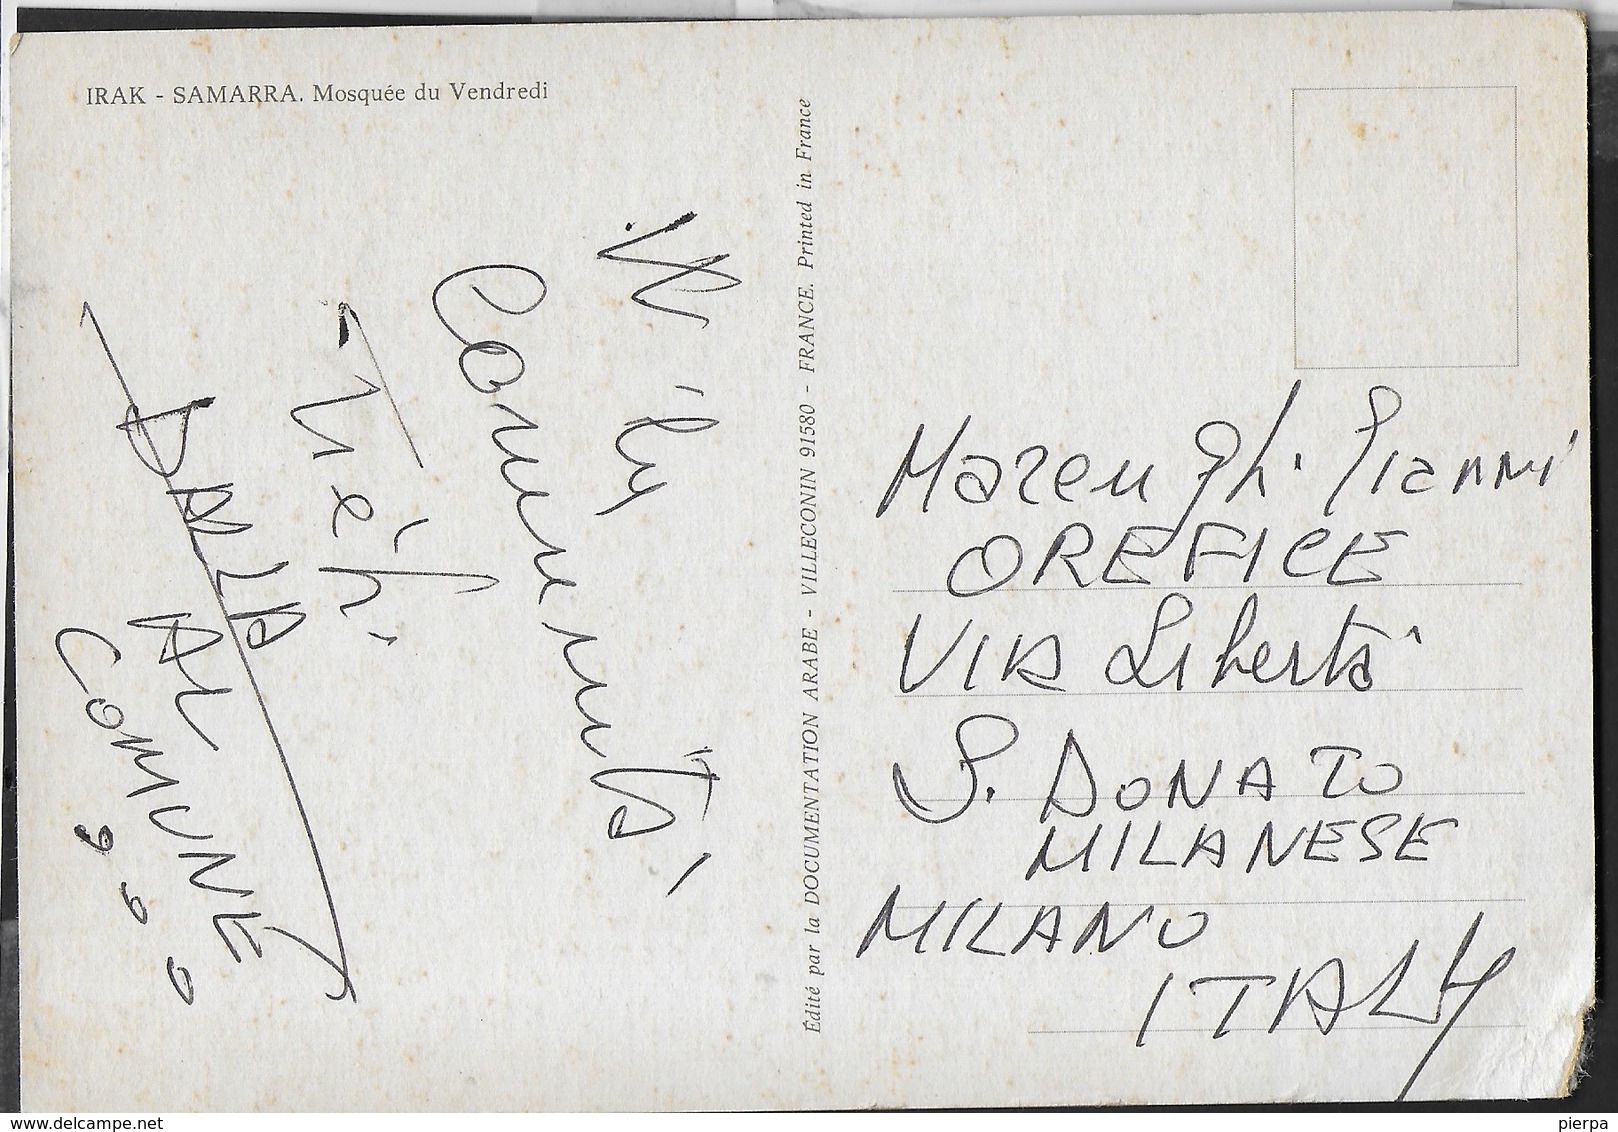 IRAK - SAMARRA. Mosquée du Vendredi
W la
Comunità
DALLA
AL
COMUNE
Édité par la DOCUMENTATION ARABE - VILLECONIN 91580 - FRANCE. Printed in France
Marenghi Gianni
OREFICE
VIA Libertà
S. DONATO
MILANESE
MILANO
ITALY
delcampe.net
pierpa